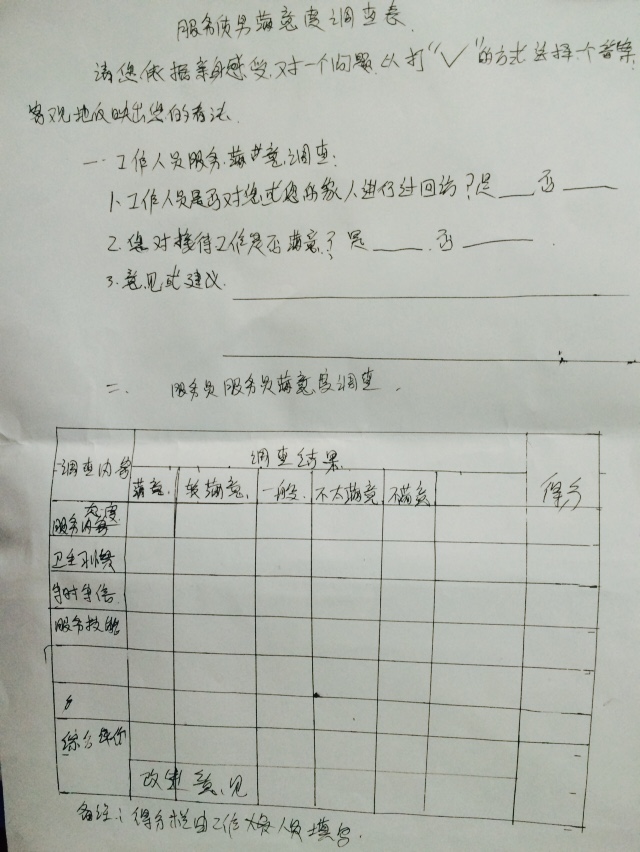 服务质量满意度调查表
请您依据亲身感受,对一个问题,以打“√”的方式选择一个答案,
客观地反映出您的看法.
一.工作人员服务满意调查:
1.工作人员是否对您或您的家人进行过回访?是___否___
2.您对接待工作是否满意?是___.否___.
3.意见或建议.
二. 服务员服务员满意度调查.
调查内容 调查结果 得分
满意. 较满意. 一般. 不太满意 不满意
服务态度
卫生习惯
守时守信
服务技能
综合评价
改进意见
备注:得分栏由工作人员填写.